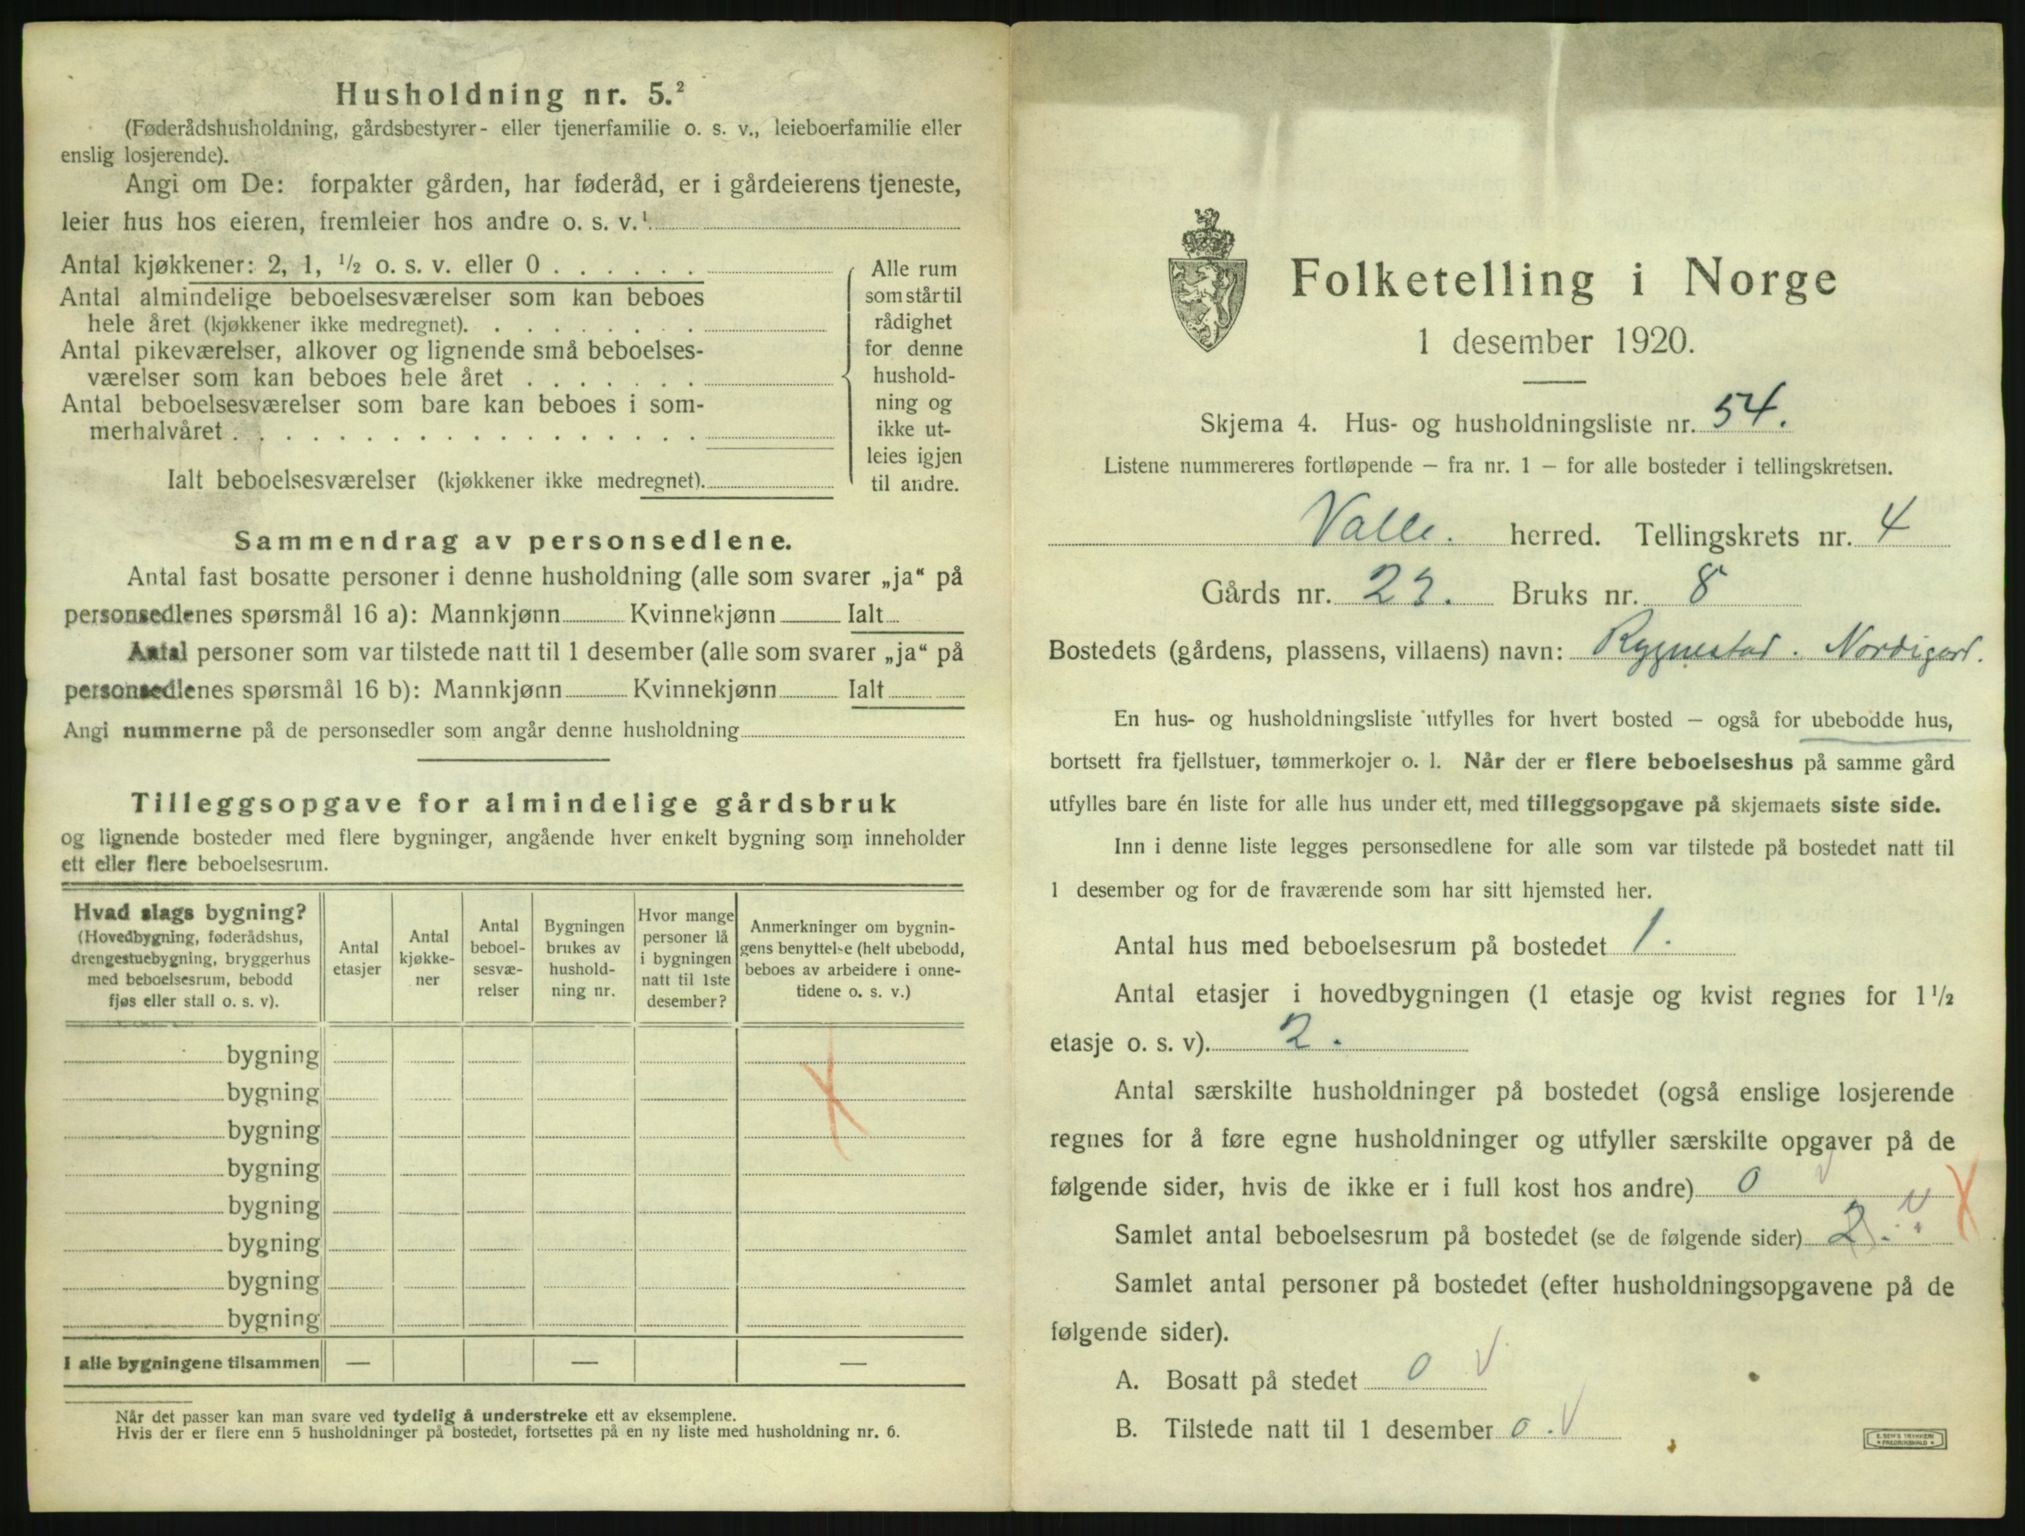 Husholdning nr. 5.²
(Føderådshusholdning, gårdsbestyrer- eller tjenerfamilie o. s. v., leieboerfamilie eller
enslig losjerende).
Angi om De: forpakter gården, har føderåd, er i gårdeierens tjeneste,
leier hus hos eieren, fremleier hos andre o. s. v.¹
Antal kjøkkener: 2, 1, ½ o. s. v. eller 0
Antal almindelige beboelsesværelser som kan beboes
hele året (kjøkkener ikke medregnet).
Antal pikeværelser, alkover og lignende små beboelses-
værelser som kan beboes hele året
Antal beboelsesværelser som bare kan beboes i som-
merhalvåret
Ialt beboelsesværelser (kjøkkener ikke medregnet).
Alle rum
som står til
rådighet
for denne
hushold-
ning og
ikke ut-
leies igjen
til andre.
Sammendrag av personsedlene.
Antal fast bosatte personer i denne husholdning (alle som svarer „ja“ på
personsedlenes spørsmål 16 a): Mannkjønn Kvinnekjønn Ialt
Antal personer som var tilstede natt til 1 desember (alle som svarer „ja“ på
personsedlenes spørsmål 16 b): Mannkjønn Kvinnekjønn Ialt
Angi nummerne på de personsedler som angår denne husholdning
Tilleggsopgave for almindelige gårdsbruk
og lignende bosteder med flere bygninger, angående hver enkelt bygning som inneholder
ett eller flere beboelsesrum.
Hvad slags bygning?
(Hovedbygning, føderådshus,
drengestuebygning, bryggerhus
med beboelsesrum, bebodd
fjøs eller stall o. s. v).
Antal
etasjer
Antal
kjøkke-
ner
Antal
beboel-
sesvæ-
relser
Bygningen
brukes av
hushold-
ning nr.
Hvor mange
personer lå
i bygningen
natt til 1ste
desember?
Anmerkninger om bygnin-
gens benyttelse (helt ubebodd,
beboes av arbeidere i onne-
tidene o. s. v.)
bygning
bygning
bygning
bygning
bygning
bygning
bygning
bygning
I alle bygningene tilsammen — — —
Når det passer kan man svare ved tydelig å understreke ett av eksemplene.
Hvis der er flere enn 5 husholdninger på bostedet, fortsettes på en ny liste med husholdning nr. 6.
Folketelling i Norge
1 desember 1920.
Skjema 4. Hus- og husholdningsliste nr. 54.
Listene nummereres fortløpende – fra nr. 1 – for alle bosteder i tellingskretsen.
Valle. herred. Tellingskrets nr. 4
Gårds nr. 23. Bruks nr. 8
Bostedets (gårdens, plassens, villaens) navn: Rygnestad. Nordigard.
En hus- og husholdningsliste utfylles for hvert bosted – også for ubebodde hus,
bortsett fra fjellstuer, tømmerkojer o. l. Når der er flere beboelseshus på samme gård
utfylles bare én liste for alle hus under ett, med tilleggsopgave på skjemaets siste side.
Inn i denne liste legges personsedlene for alle som var tilstede på bostedet natt til
1 desember og for de fraværende som har sitt hjemsted her.
Antal hus med beboelsesrum på bostedet 1.
Antal etasjer i hovedbygningen (1 etasje og kvist regnes for 1 ½
etasje o. s. v). 2.
Antal særskilte husholdninger på bostedet (også enslige losjerende
regnes for å føre egne husholdninger og utfyller særskilte opgaver på de
følgende sider, hvis de ikke er i full kost hos andre) 0
Samlet antal beboelsesrum på bostedet (se de følgende sider) 2.
Samlet antal personer på bostedet (efter husholdningsopgavene på de
følgende sider).
A. Bosatt på stedet 0
B. Tilstede natt til 1 desember 0.